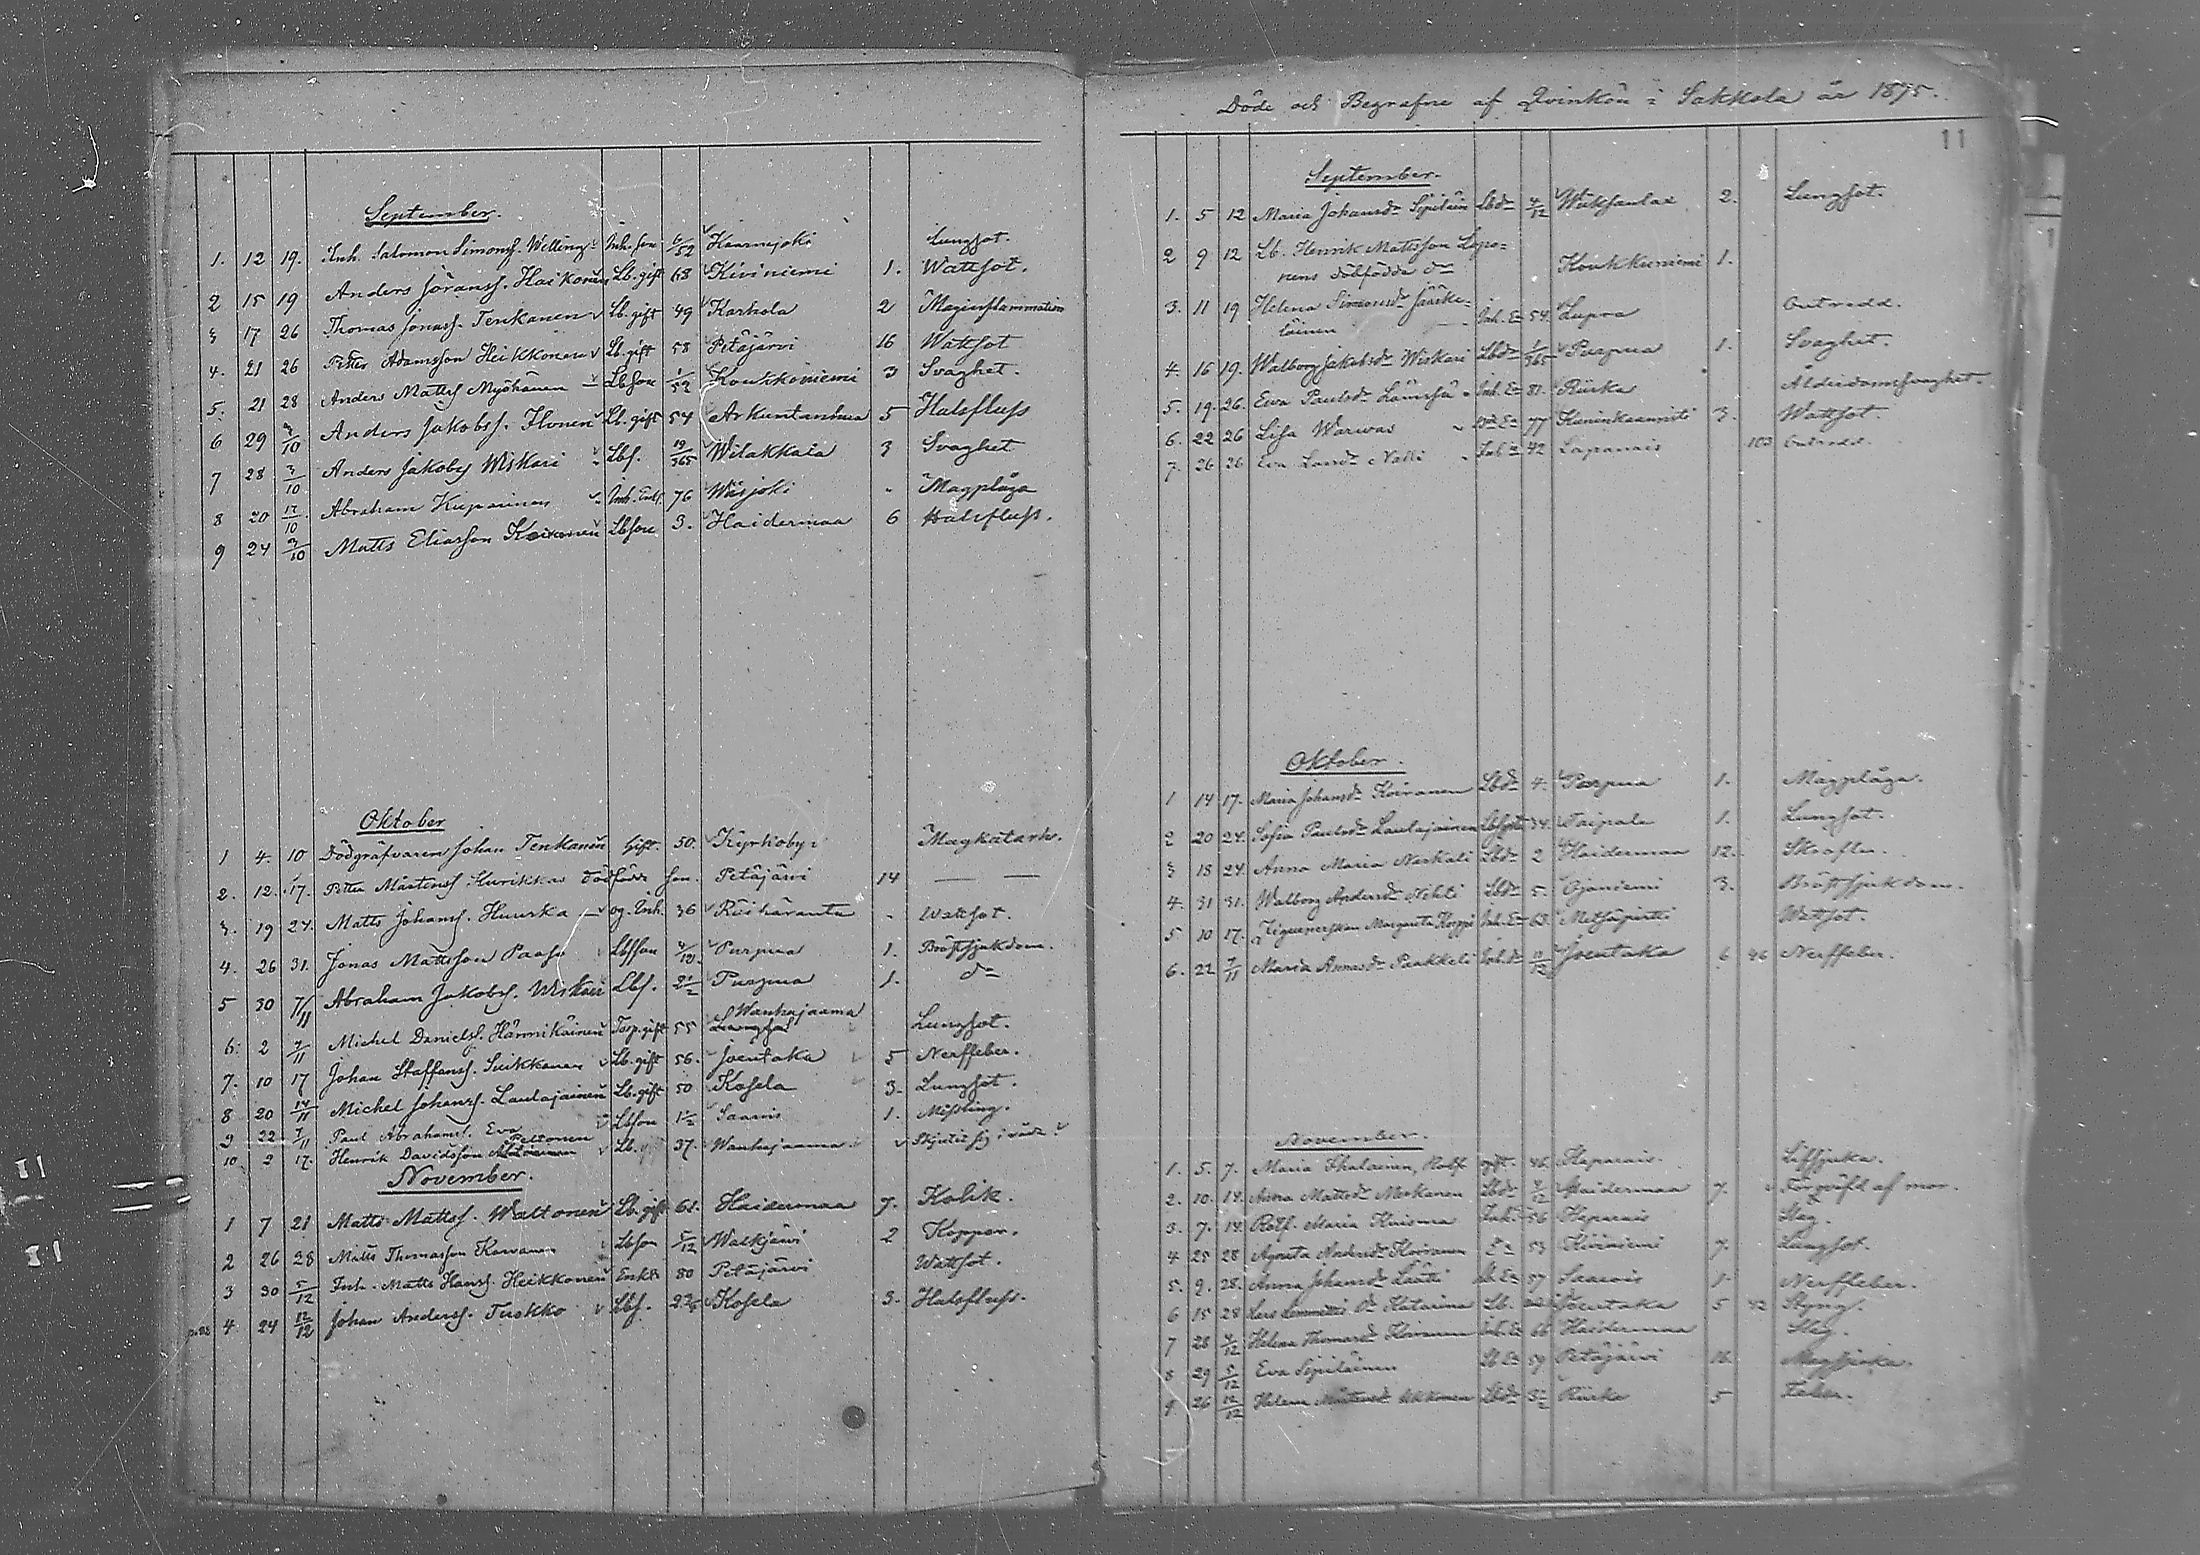 September.
1. 12 19. Inh. Salomon Simonss. Welling Inh. son 6/52 Kaarnajoki Lungsot.
2 15 19 Anders Jöranss. Haikonen Lb. gift 68 Kiviniemi 1. Wattsot.
3 17 26 Thomas Jonass. Tenkanen Lb. gift 49 Karhola 2 Maginflammation
4. 21 26 Petter Adamsson Heikkonen Lb. gift 58 Petäjärvi 16 Wattsot
5. 21 28 Anders Mattss Myöhänen Lbson 1/52 Koukkoniemi 3 Svaghet.
6 29 3/10 Anders Jakobss. Ilvonen Lb. gift 54 Arkuntanhua 5 Halsfluss
7 28 3/10 Anders Jakobss Wiskari Lbs. 19/365 Wilakkala 3 Svaghet
8 20 17/10 Abraham Kuparinen Inh. Enkl. 76 Wäsjoki " Magplåga
9 24 3/10 Matts Eliasson Koiranen Lbson 3. Haidermaa 6 Halsfluss.
Oktober
1 4. 10 Dödgräfvaren Johan Tenkanen Gift. 50. Kyrkoby Magkatarh.
2. 12. 17. Petter Mårtenss. Kurikka dödfödd son. Petäjärvi 14 — —
3. 19 24. Matts Johanss. Huuska og. Inh. 36 Riiharanta " Wattsot.
4. 26 31. Jonas Mattsson Paaso Lbsson 4/12 Purpua 1. Bröstsjukdom.
5 30 7/11 Abraham Jakobss. Wiskari Lbs. 2 1/2 Purpua 1. do
Wanhajaama
6. 2 7/11 Michel Danielss. Hännikäinen Torp. gift 55 Lungsot.
7. 10 17 Johan Staffanss. Suikkanen Lb. gift 56. Joentaka 5 Nerffeber.
8 20 14/11 Michel Johanss. Laulajainen Lb. gift 50 Kosela 3. Lungsot.
9 22 7/11 Paul Abrahamss. Eva Lbson 1 1/2 Saaris 1. Mässling.
Peltonen
10. 2 17. Henrik Davidsson Lb. 37. Wanhajaama Skjutit sig i våda.
November.
1 7 21 Matts Mattss. Waltonen Lb. gift 61. Haidermaa 7. Kolik.
2 26 28 Matts Thomasson Kaivanen Lbson 5/12 Walkjärvi 2 Koppor.
3 30 5/12 Inh. Matts Hanss. Heikkonen Enkl. 80 Petäjärvi Wattsot.
4. 24 12/12 Johan Anderss. Tuokko Lbs. Kosela 3. Halsfluss.
Döde och Begrafne af Qvinkön i Sakkola år 1875.
11
September.
1. 5 12 Maria Johansdr Sipiläin Lbdr 4/12 2. Lungsot.
2 9 12 Lb. Henrik Mattsson Lepo=
nens dödfödda dr Koukkuniemi 1.
3. 11 19 Helena Simonsdr Jääske=
läinen Inh. Ea 54. Lupra Outredd.
4. 16 19. Walborg Jakobsdr Wiskari Lbdr 1/365 Purpua 1. Svaghet.
5. 19. 26. Eva Paulsdr Länssä Inh. Ea 81. Riiska Ålderdomssvaghet.
6. 22 26 Lisa Warwas Ea 77 Kuninkaanristi 3. Wattsot.
7. 26 26 Eva Nalli 42 Lapanais 103 Outredd.
Oktober.
1 14 17. Maria Johansdr Koiranen Lbdr 4. Purpua 1. Magplåga.
2 20 24. Sofia Paulsdr Laulajainen Lb gift 34. Taipale 1. Lungsot.
3 18 24. Anna Maria Naskali Lbdr 2 Haidermaa 12. Skrofler.
4. 31 31. Walborg Andersdr Lbdr 5. Ojaniemi 3. Bröstsjukdom.
5 10 17. Zigenerskan Margareta Korppi Inh. Ea 63. Metsäpirtti Wattsot.
6. 22 7/11 Maria Paakkeli Inh. dr 11/12 Joentaka 6 46 Nerffeber.
November.
1. 5. 7. Maria Ihalainen, gift. 46. Haparais. Lifsjuka.
2. 10. 14. Anna Mattsdr Moskanen Lbdr 2/12 Haidermaa 7. Förqväfd af mor.
3. 7. 14. Maria Kuisma Inh. 56 Haparais Slag.
4 25 28 Agneta Andersdr Koiranen Ea 53 Kiviniemi 7. Lungsot.
5. 9. 28. Anna Johansdr Lautti Lb. Ea 57 Saarois 1. Nerffeber.
6 15 28 Lars dr Katarina Lb. Joentaka 5 42 Styng.
7 28 4/12 Helena Thomasdr Koiranen Inh. Ea 66 Haidermaa Slag.
8 29 5/12 Eva Sipiläinen Lb Ea 59 Petäjärvi 16. Magsjuka.
9. 26 12/12 Helena Mårtensdr Ukkonen Lbdr 3 1/2 Riiska 5 Feber.